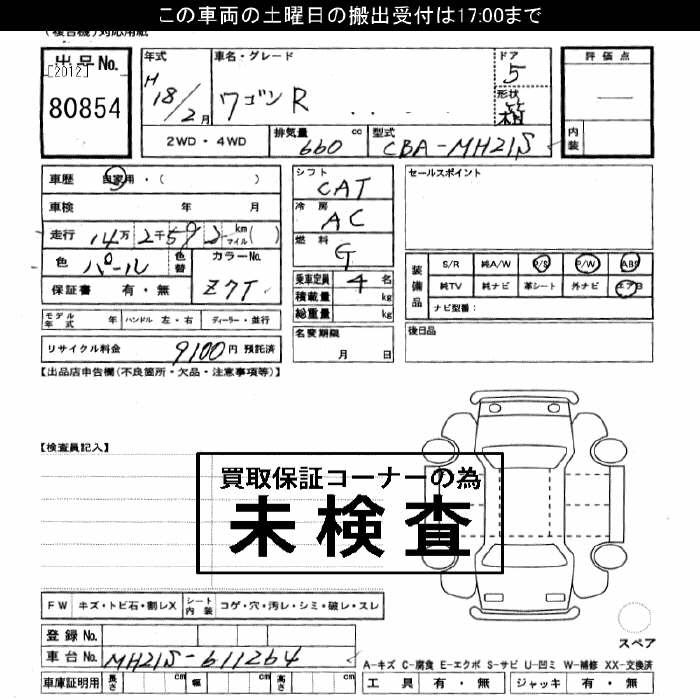 この車両の土曜日の搬出受付は17:00まで
(複合機)対応用紙
出品No.
[2012]
80854
年式
H
18/2月
車名・グレード
ワゴンR
ドア
5
形状
箱
2WD・4WD
排気量 660 cc
型式 CBA-MH21S
評価点
内装
車歴 自家用・( )
車検 年 月
走行 14万2千592 km マイル( )
色 パール 色替 カラーNo.
保証書 有・無 Z7T
モデル年式 年 ハンドル 左・右 ディーラー・並行
リサイクル料金 9100円 預託済
シフト
CAT
冷房
AC
燃料
G
乗車定員 4 名
積載量 kg
総重量 kg
名変期限
月 日
セールスポイント
装備品
S/R 純A/W P/S P/W ABS
純TV 純ナビ 革シート 外ナビ エアB
ナビ型番:
後日品
【出品店申告欄(不良箇所・欠品・注意事項等)】
【検査員記入】
買取保証コーナーの為
未検査
FW キズ・トビ石・割レX シート内装 コゲ・穴・汚レ・シミ・破レ・スレ
登録No.
車台No. MH21S-611264
車庫証明用 長さ cm 幅 cm 高さ cm
スペア
A-キズ C-腐食 E-エクボ S-サビ U-凹ミ W-補修 XX-交換済
工具 有・無 ジャッキ 有・無